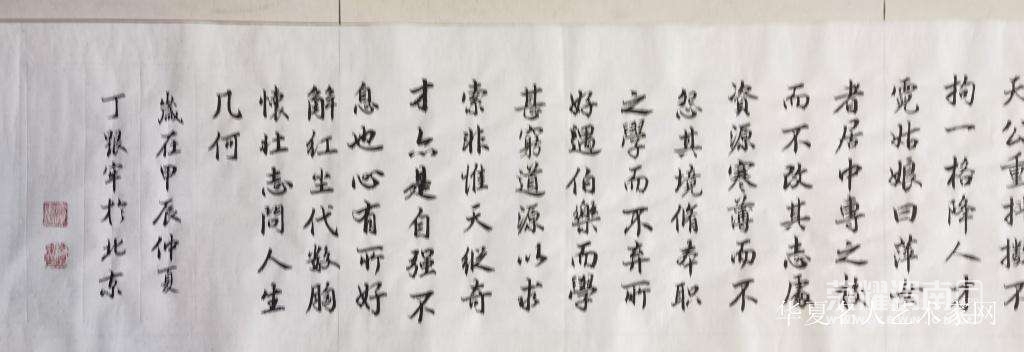 天公重抖擻不
拘一格降人才
霓姑娘曰萍
者居中專之
而不改其志處
資源寒薄而不
怨其境脩本职
之學而不弃所
好遇伯樂而學
甚窮道源以求
索非惟天縱奇
才亦是自强不
息也心有所好
解红尘代数胸
懷壮志問人生
几何
歲在甲辰仲夏
丁跟牢於北京
荣耀渭南网
华夏名人艺术家网